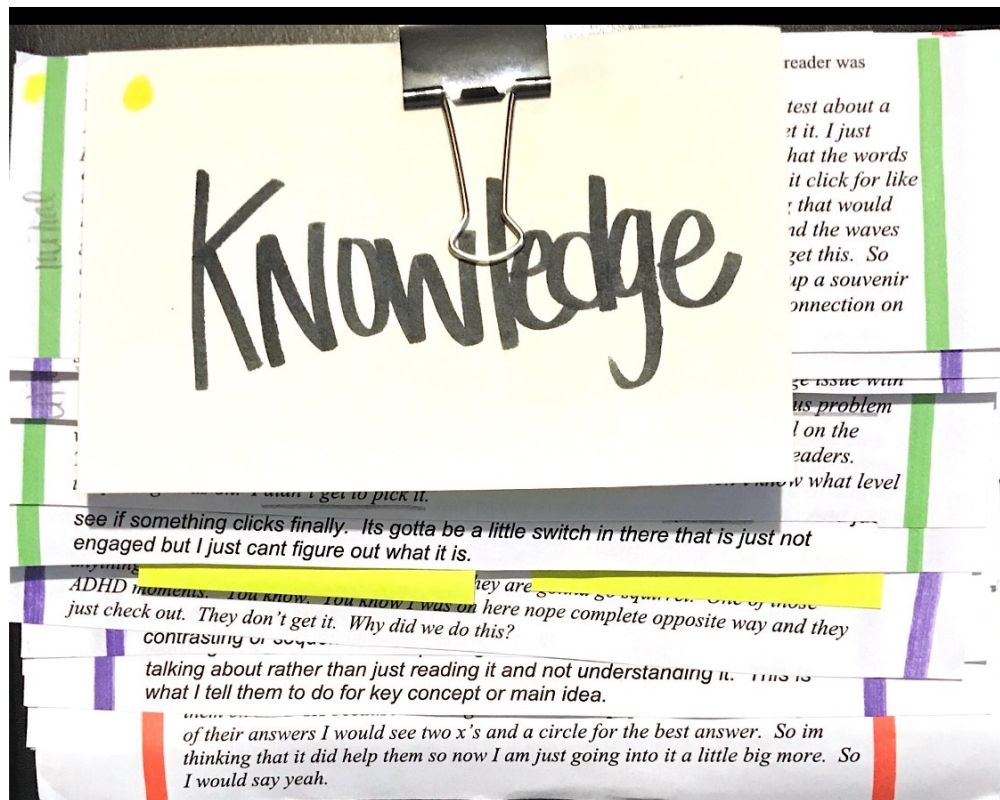 Knowledge
reader was
test about a
et it. I just
hat the words
it click for like
that would
nd the waves
get this. So
up a souvenir
onnection on
initial
ge issue with
us problem
l on the
eaders.
w what level
I didn't get to pick it.
see if something clicks finally. Its gotta be a little switch in there that is just not
engaged but I just cant figure out what it is.
anything hey are gonna go squirrel. One of those
ADHD moments. You know. You know I was on here nope complete opposite way and they
just check out. They don't get it. Why did we do this?
contrasting or
talking about rather than just reading it and not understanding it. This is
what I tell them to do for key concept or main idea.
of their answers I would see two x's and a circle for the best answer. So im
thinking that it did help them so now I am just going into it a little big more. So
I would say yeah.